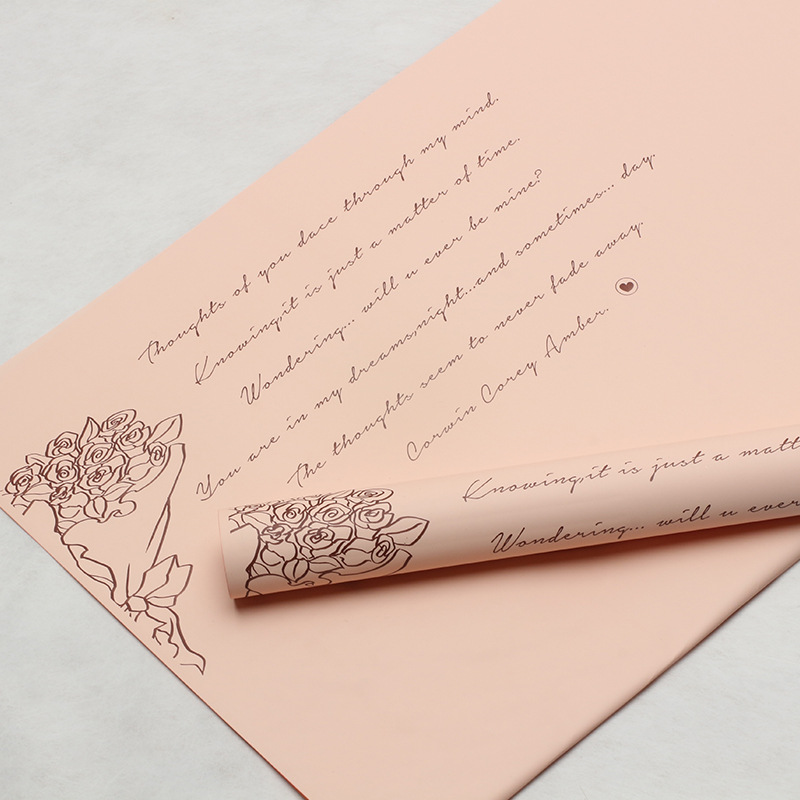 Thoughts of you dace through my mind.
Knowing,it is just a matter of time.
Wondering... will u ever be mine?
You are in my dreams,night...and sometimes... day.
The thoughts seem to never fade away.
Corwin Corey Amber.
Knowing,it is just a matt
Wondering... will u ever